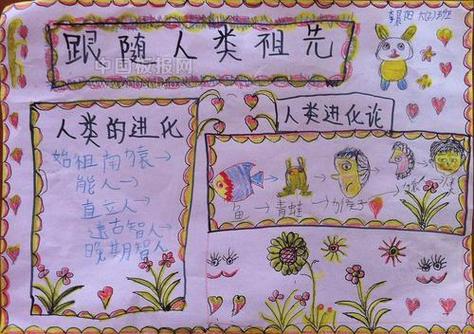 跟随人类祖先
中国板报网
人类的进化
始祖南猿→
能人→
直立人→
远古智人→
晚期智人
人类进化论
鱼→青蛙→